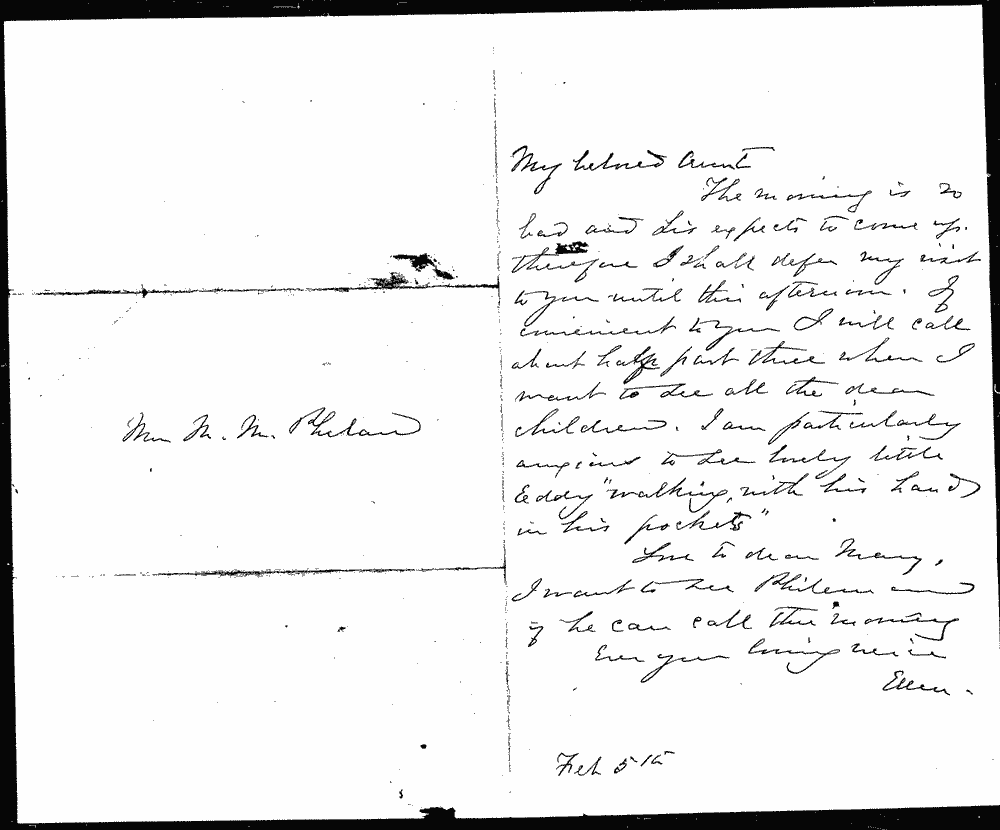 Mrs M. M. Pheland
My beloved Aunt
The morning is so
bad and Lis expects to come up.
therefore I shall defer my visit
to you until this afternoon. If
convenient to you I will call
about half past three when I
want to see all the dear
children. I am particularly
anxious to see lovely little
Eddy "walking, with his hands
in his pockets"
Love to dear Mary,
I want to see Philem and
if he can call this morning
Ever your loving neice
Ellen.
Feb 5th